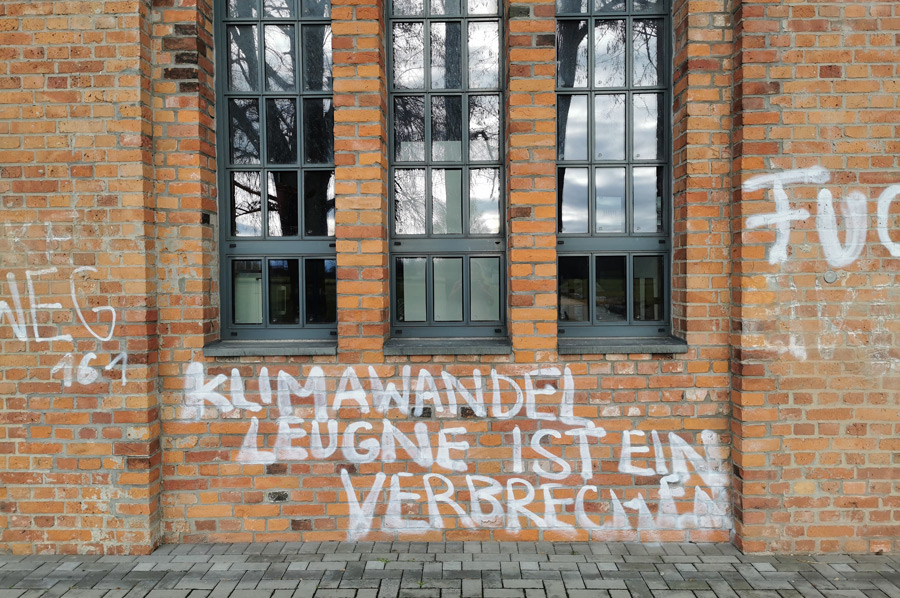 WEG
161
KLIMAWANDEL
LEUGNE IST EIN
VERBRECHEN
FUC